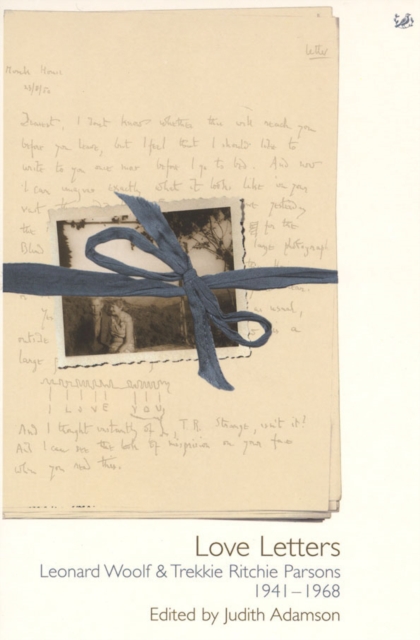 letter
Monks House
Dearest, I don't know whether this will reach you
before you leave, but I feel that I should like to
write to you once more before I go to bed. And now
I can imagine exactly what it looks like in your
yesterday
the for the
large photograph
as usual,
outside a
large
I L I V E YOU
And I thought instantly of T.R. Strange, isn't it!
And I can see the look of suspicion on your face
when you read this.
Love Letters
Leonard Woolf & Trekkie Ritchie Parsons
1941–1968
Edited by Judith Adamson